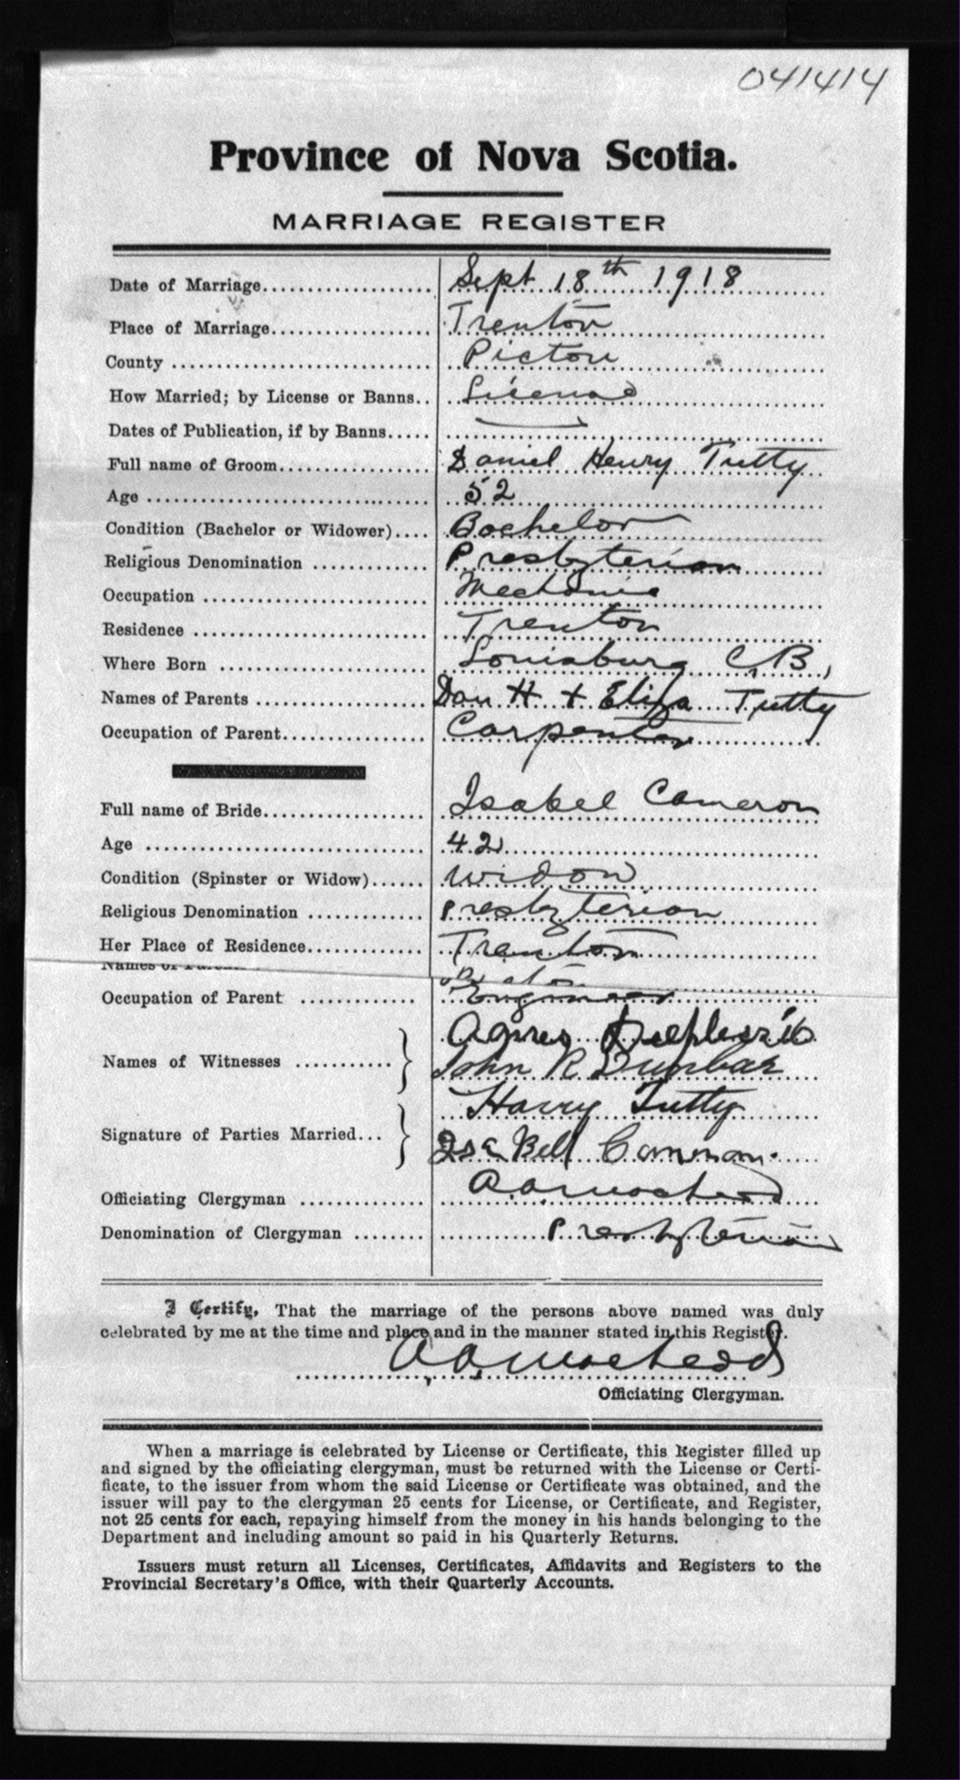 041414
Province of Nova Scotia.
MARRIAGE REGISTER
Date of Marriage Sept 18th 1918
Place of Marriage Trenton
County Pictou
How Married; by License or Banns License
Dates of Publication, if by Banns
Full name of Groom Daniel Henry Tutty
Age 52
Condition (Bachelor or Widower) Bachelor
Religious Denomination Presbyterian
Occupation Mechanic
Residence Trenton
Where Born Louisburg C,B,
Names of Parents Dan H + Eliza Tutty
Occupation of Parent Carpenter
Full name of Bride Isabel Cameron
Age 42
Condition (Spinster or Widow) Widow
Religious Denomination Presbyterian
Her Place of Residence Trenton
Names of
Occupation of Parent Engineer
Names of Witnesses Agnes
John R Dunbar
Signature of Parties Married... Harry Tutty
Isa Bell
Officiating Clergyman
Denomination of Clergyman Presbyterian
I Certify, That the marriage of the persons above named was duly
celebrated by me at the time and place and in the manner stated in this Register.
Officiating Clergyman.
When a marriage is celebrated by License or Certificate, this Register filled up
and signed by the officiating clergyman, must be returned with the License or Certi-
ficate, to the issuer from whom the said License or Certificate was obtained, and the
issuer will pay to the clergyman 25 cents for License, or Certificate, and Register,
not 25 cents for each, repaying himself from the money in his hands belonging to the
Department and including amount so paid in his Quarterly Returns.
Issuers must return all Licenses, Certificates, Affidavits and Registers to the
Provincial Secretary's Office, with their Quarterly Accounts.